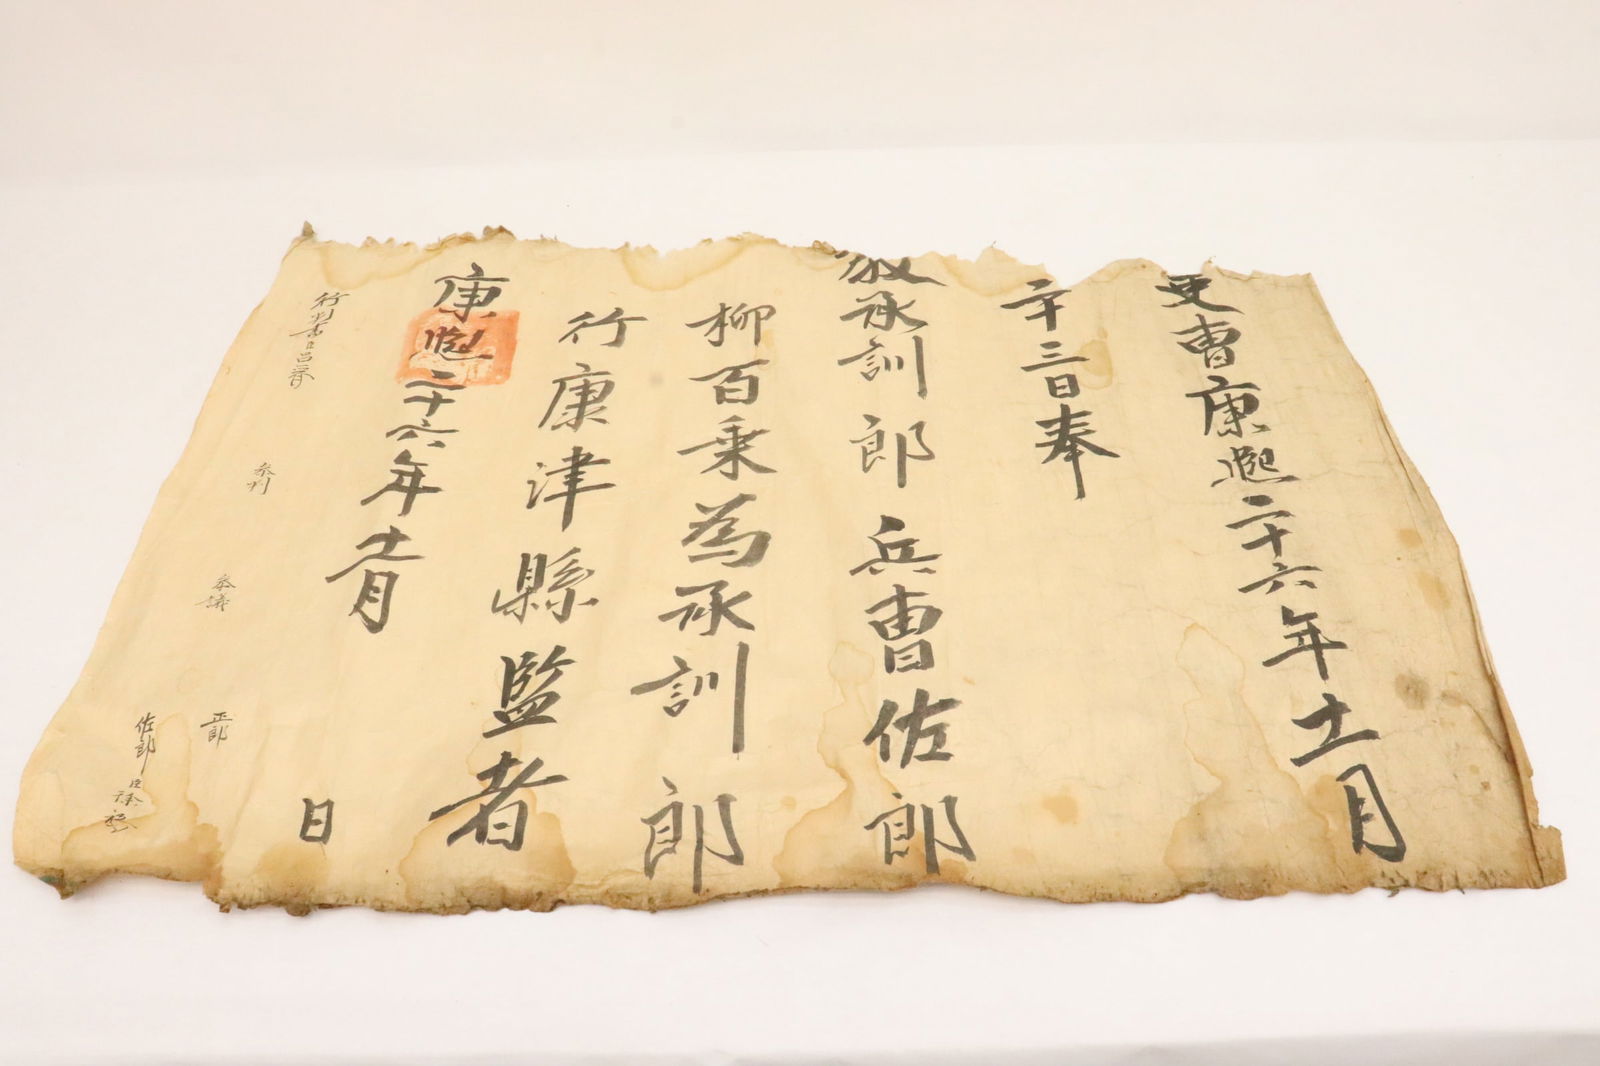 吏曺康熙二十六年十二月
二十三日奉
敎承訓郎兵曺佐郎
柳百乗為承訓郎
行康津縣監者
康熙二十六年十二月 日
行判書臣
參判
參議
正郎
佐郎臣